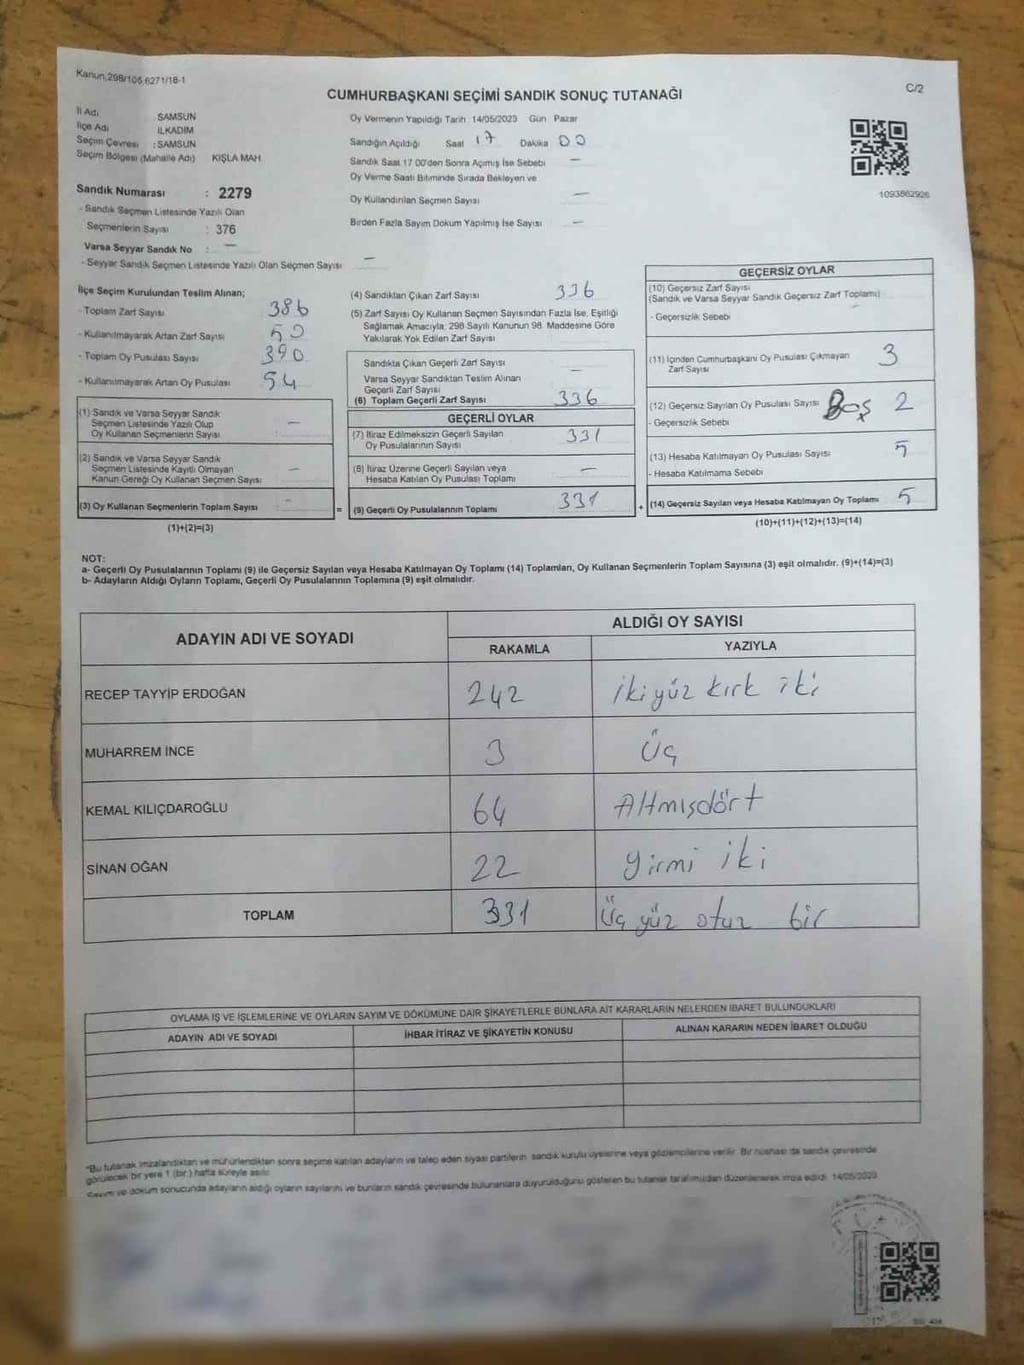 Kanun,298/105,6271/18-1
C/2
CUMHURBAŞKANI SEÇİMİ SANDIK SONUÇ TUTANAĞI
İl Adı : SAMSUN
İlçe Adı İLKADIM
Seçim Çevresi : SAMSUN
Seçim Bölgesi (Mahalle Adı) KIŞLA MAH.
Sandık Numarası : 2279
- Sandık Seçmen Listesinde Yazılı Olan
Seçmenlerin Sayısı : 376
Varsa Seyyar Sandık No : —
- Seyyar Sandık Seçmen Listesinde Yazılı Olan Seçmen Sayısı —
Oy Vermenin Yapıldığı Tarih 14/05/2023 Gün Pazar
Sandığın Açıldığı Saat 17 Dakika 00
Sandık Saat 17.00'den Sonra Açımış İse Sebebi —
Oy Verme Saati Bitiminde Sırada Bekleyen ve
Oy Kullandırılan Seçmen Sayısı —
Birden Fazla Sayım Döküm Yapılmış İse Sayısı —
1093862926
İlçe Seçim Kurulundan Teslim Alınan;
- Toplam Zarf Sayısı 386
- Kullanılmayarak Artan Zarf Sayısı 50
- Toplam Oy Pusulası Sayısı 390
- Kullanılmayarak Artan Oy Pusulası 54
(1) Sandık ve Varsa Seyyar Sandık
Seçmen Listesinde Yazılı Olup
Oy Kullanan Seçmenlerin Sayısı —
(2) Sandık ve Varsa Seyyar Sandık
Seçmen Listesinde Kayıtlı Olmayan
Kanun Gereği Oy Kullanan Seçmen Sayısı —
(3) Oy Kullanan Seçmenlerin Toplam Sayısı - =
(1)+(2)=(3)
(4) Sandıktan Çıkan Zarf Sayısı 336
(5) Zarf Sayısı Oy Kullanan Seçmen Sayısından Fazla İse, Eşitliği
Sağlamak Amacıyla; 298 Sayılı Kanunun 98. Maddesine Göre
Yakılarak Yok Edilen Zarf Sayısı
Sandıkta Çıkan Geçerli Zarf Sayısı
Varsa Seyyar Sandıktan Teslim Alınan
Geçerli Zarf Sayısı —
(6) Toplam Geçerli Zarf Sayısı 336
GEÇERLİ OYLAR
(7) İtiraz Edilmeksizin Geçerli Sayılan
Oy Pusulalarının Sayısı 331
(8) İtiraz Üzerine Geçerli Sayılan veya
Hesaba Katılan Oy Pusulası Toplamı —
(9) Geçerli Oy Pusulalarının Toplamı 331 +
GEÇERSİZ OYLAR
(10) Geçersiz Zarf Sayısı
(Sandık ve Varsa Seyyar Sandık Geçersiz Zarf Toplamı)
- Geçersizlik Sebebi
(11) İçinden Cumhurbaşkanı Oy Pusulası Çıkmayan
Zarf Sayısı 3
(12) Geçersiz Sayılan Oy Pusulası Sayısı Boş 2
- Geçersizlik Sebebi
(13) Hesaba Katılmayan Oy Pusulası Sayısı 5
- Hesaba Katılmama Sebebi
(14) Geçersiz Sayılan veya Hesaba Katılmayan Oy Toplamı 5
(10)+(11)+(12)+(13)=(14)
NOT:
a- Geçerli Oy Pusulalarının Toplamı (9) ile Geçersiz Sayılan veya Hesaba Katılmayan Oy Toplamı (14) Toplamları, Oy Kullanan Seçmenlerin Toplam Sayısına (3) eşit olmalıdır. (9)+(14)=(3)
b- Adayların Aldığı Oyların Toplamı, Geçerli Oy Pusulalarının Toplamına (9) eşit olmalıdır.
ADAYIN ADI VE SOYADI ALDIĞI OY SAYISI
RAKAMLA YAZIYLA
RECEP TAYYİP ERDOĞAN 242 ikiyüz kırk iki
MUHARREM İNCE 3 üç
KEMAL KILIÇDAROĞLU 64 Altmışdört
SİNAN OĞAN 22 yirmi iki
TOPLAM 331 üç yüz otuz bir
OYLAMA İŞ VE İŞLEMLERİNE VE OYLARIN SAYIM VE DÖKÜMÜNE DAİR ŞİKAYETLERLE BUNLARA AİT KARARLARIN NELERDEN İBARET BULUNDUKLARI
ADAYIN ADI VE SOYADI İHBAR İTİRAZ VE ŞİKAYETİN KONUSU ALINAN KARARIN NEDEN İBARET OLDUĞU
"Bu tutanak imzalandıktan ve mühürlendikten sonra seçime katılan adayların ve talep eden siyasi partilerin sandık kurulu üyelerine veya gözlemcilerine verilir. Bir nüshası da sandık çevresinde
görülecek bir yere 1 (bir) hafta süreyle asılır.
Sayım ve döküm sonucunda adayların aldığı oyların sayılarını ve bunların sandık çevresinde bulunanlara duyurulduğunu gösteren bu tutanak tarafımızdan düzenlenerek imza edildi. 14/05/2023